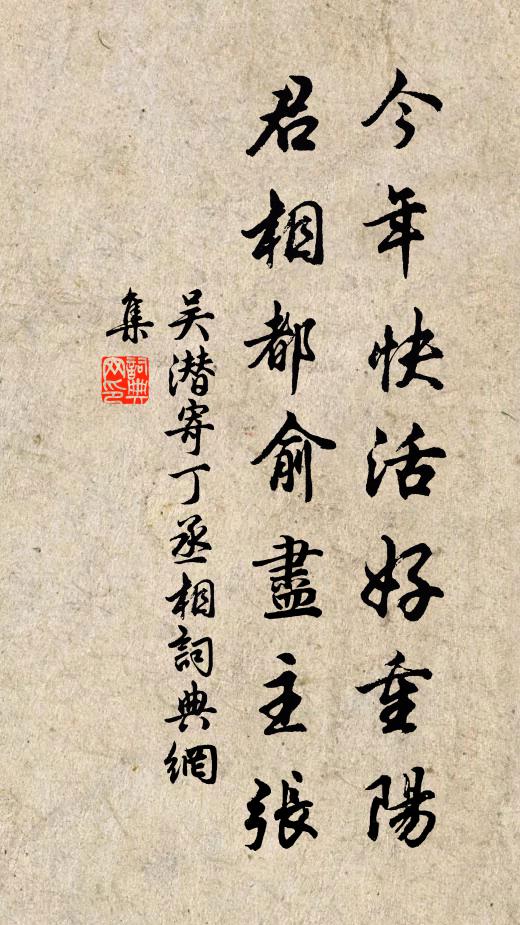 今年快活好重陽
君相都俞盡主張
吴潜寄丁丞相詞典網
集
詞典網印